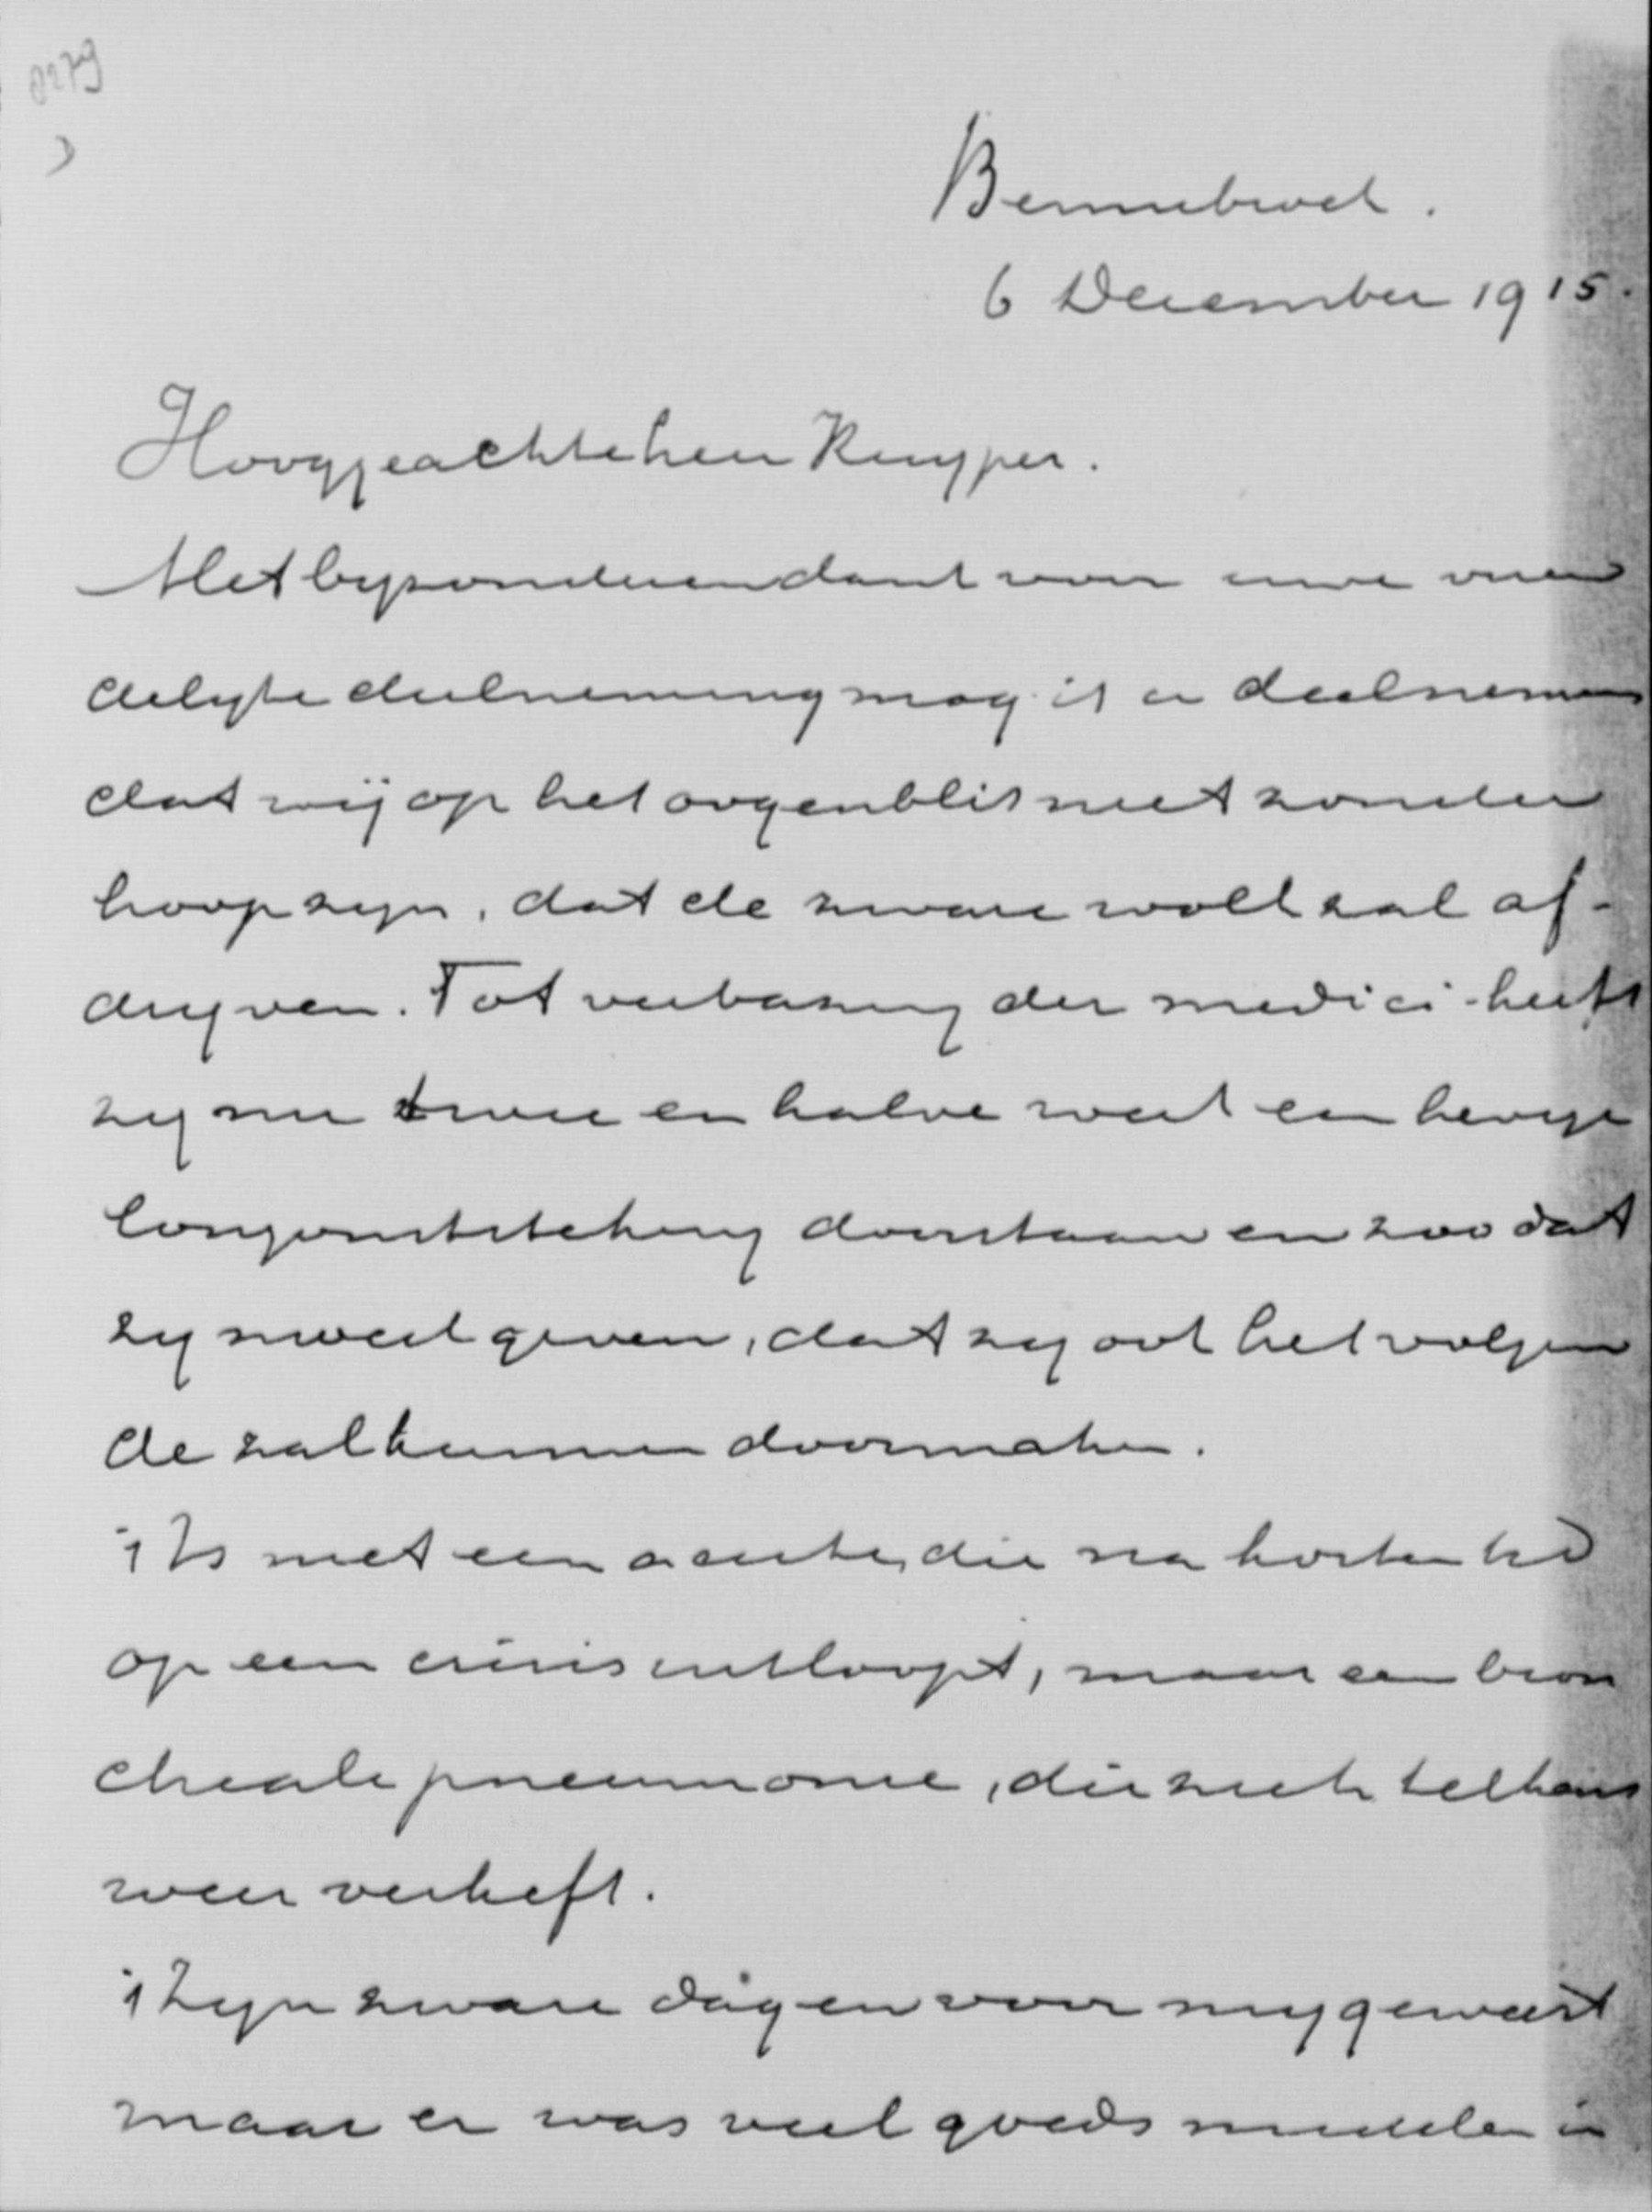 8279
Bennebroek.
6 December 1915.
Hooggeachte heer Kuyper.
Met byzonderen dank voor uwe vrien
delyke deelneming mag ik er deelnemen
dat wij op het oogenblik niet zonder
hoop zyn, dat de zware wolk zal af-
dryven. Tot verbazing der medici heeft
zy nu twee en halve week een hevige
longontsteking doorstaan en zoo dat
zy moed geven, dat zy ook het volgen
de zal kunnen doormaken.
't Is niet een acute, die na korten tyd
op een crisis uitloopt, maar een bron
cheale pneumonie, die zich telkens
weer verheft.
't Zyn zware dagen voor my geweest
maar er was veel goeds midden in